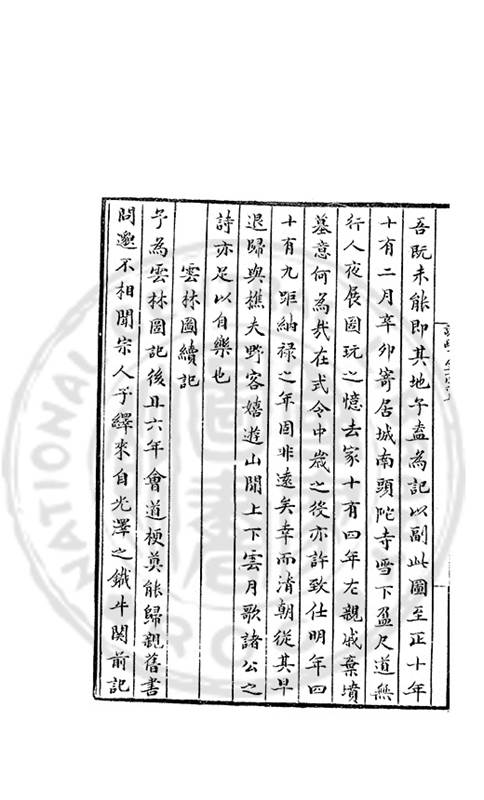 吾既未能即其地子盍為記以副此圖至正十年
十有二月辛卯寄居城南頭陀寺雪下盈尺道無
行人夜展圖玩之憶去家十有四年左親戚棄墳
墓意何為哉在式令中歲之後亦許致仕明年四
十有九距納祿之年固非遠矣幸而清朝從其早
退歸與樵夫野客嬉遊山間上下雲月歌諸公之
詩亦足以自樂也
雲林圖續記
予為雲林圖記後五六年會道梗莫能歸親舊書
問邈不相聞宗人子繹來自光澤之鐵牛関前記